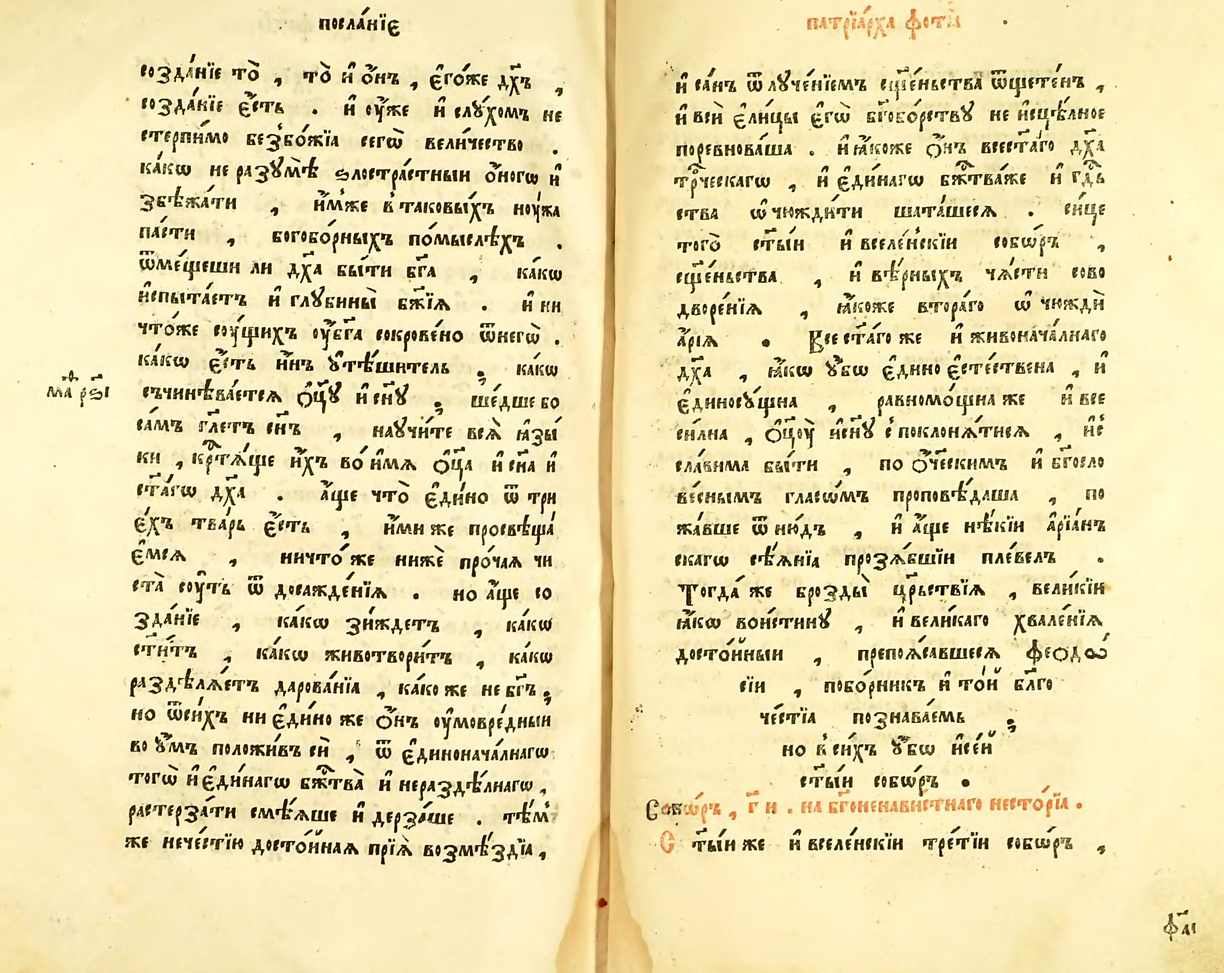 посла́нїе
созда́нїе то̀ , то̀ и҆ ѻ҆́нъ , є҆го́же дх҃ъ ,
созда́нїе є҆́сть . и҆ ѹ҆́же и҆ слꙋ́хомъ не
стерпи́мо безбо́жїа сегѡ̀ вели́чество .
ка́кѡ не разꙋмѣ̀ ѕлостра́стныи ѻ҆́ногѡ и҆
збѣ́жати , и҆́мже в таковы́хъ нѹ́жа
па́сти , богобо́рныхъ по́мыслѣхъ .
ѿме́щеши ли дх҃а бы́ти бг҃а , ка́кѡ
и҆спыта́етъ и҆ глꙋбины̀ бж҃їѧ . и҆ ни
что́же сѹ́щихъ ѹ҆ бг҃а сокрове́но ѿ негѡ̀ .
ка́кѡ є҆́сть и҆́нъ ᲂу҆тѣ́шитель , ка́кѡ
съчинѣва́етсѧ ѻ҆ц҃ꙋ̀ и҆ сн҃ꙋ , ше́дше бо
са́мъ гл҃етъ сн҃ъ , наꙋчи́те всѧ̀ ꙗ҆зы́
ки , кр҃тѧ́ще и҆́хъ во и҆́мѧ ѻ҆ц҃а̀ и҆ сн҃а и҆
ст҃а́гѡ дх҃а . а҆́ще что̀ є҆ди́но ѿ три
є҆́хъ тва́рь є҆́сть , и҆́ми же просвѣща́
є҆мсѧ , ничто́же нижѐ про́чаѧ чи
ста̀ сѹ́ть ѿ досажде́нїѧ . но а҆́ще со
зда́нїе , ка́кѡ зи́ждетъ , ка́кѡ
ст҃и́тъ , ка́кѡ животвори́тъ , ка́кѡ
раздѣлѧ́етъ дарова́нїа , ка́ко же не бг҃ъ ,
но ѿ си́хъ ни є҆ди́но же ѻ҆́нъ ѹ҆мовре́дныи
во ᲂу҆́мъ положи́въ сѝ , ѿ є҆диноначалнагѡ
тогѡ̀ и҆ є҆ди́нагѡ бж҃тва̀ и҆ нераздѣ́лнагѡ ,
растерза́ти смѣ́ѧше и҆ дерза́ше . тѣ́м
же нече́стїю досто́йнаѧ прїѧ̀ возмѣ́здїа ,
патрїа́рха фотїа
и҆ са́нъ ѿлꙋче́нїемъ сщ҃е́ньства ѿщете́нъ ,
и҆ вси̑ є҆ли́цы є҆гѡ̀ бг҃обо́рствꙋ не и҆сцѣ́лное
поревнова́ша . и҆ ꙗ҆́коже ѻ҆́нъ всест҃а́го дх҃а
тр҃ческагѡ , и҆ є҆ди́нагѡ бж҃тва́же и҆ гд҃ь
ства ѡ҆чюжди́ти шата́шесѧ . си́це
того̀ ст҃ы́и и҆ вселе́нскїи собѡ́ръ ,
сщ҃е́ньства , и҆ вѣ́рныхъ ча́сти сово
дворе́нїѧ , ꙗ҆́коже второ́аго ѡ҆ чюждѝ
а҆́рїа . Всест҃а́го же и҆ живонача́лнаго
дх҃а , ꙗ҆́кѡ ᲂу҆́бѡ є҆дино є҆сте́ствена , и҆
є҆диносꙋ́щна , равномо́щна же и҆ все
си́лна , ѻ҆ц҃ѹ̀ и҆ сн҃ꙋ с поклонѧ́тисѧ , и҆ с
сла́вима бы́ти , по ѻ҆те́ческимъ и҆ бг҃осло
ве́снымъ гласѡ́мъ проповѣ́даша , по
жа́вше ѿ ню́дъ , и҆ а҆́ще нѣ́кїи а҆рїа́нъ
скаго сѣ́ѧнїа прозѧ́бшїи пле́велъ .
Тогда́ же брозды̀ цр҃ьствїѧ , вели́кїи
ꙗ҆́кѡ вои́стинꙋ , и҆ вели́каго хвале́нїѧ
досто́йныи , препоѧ́савшесѧ феодо́
сїи , побо́рникъ и҆ то́й бл҃го
че́стїа познава́емь ,
но в си́хъ ᲂу҆́бѡ и҆ се́й
ст҃ы́и собѡ́ръ .
Собѡ́ръ , г҃ и . на бг҃оненави́стнаго несто́рїа .
С ст҃ы́и же и҆ вселе́нскїи тре́тїи собѡ́ръ ,